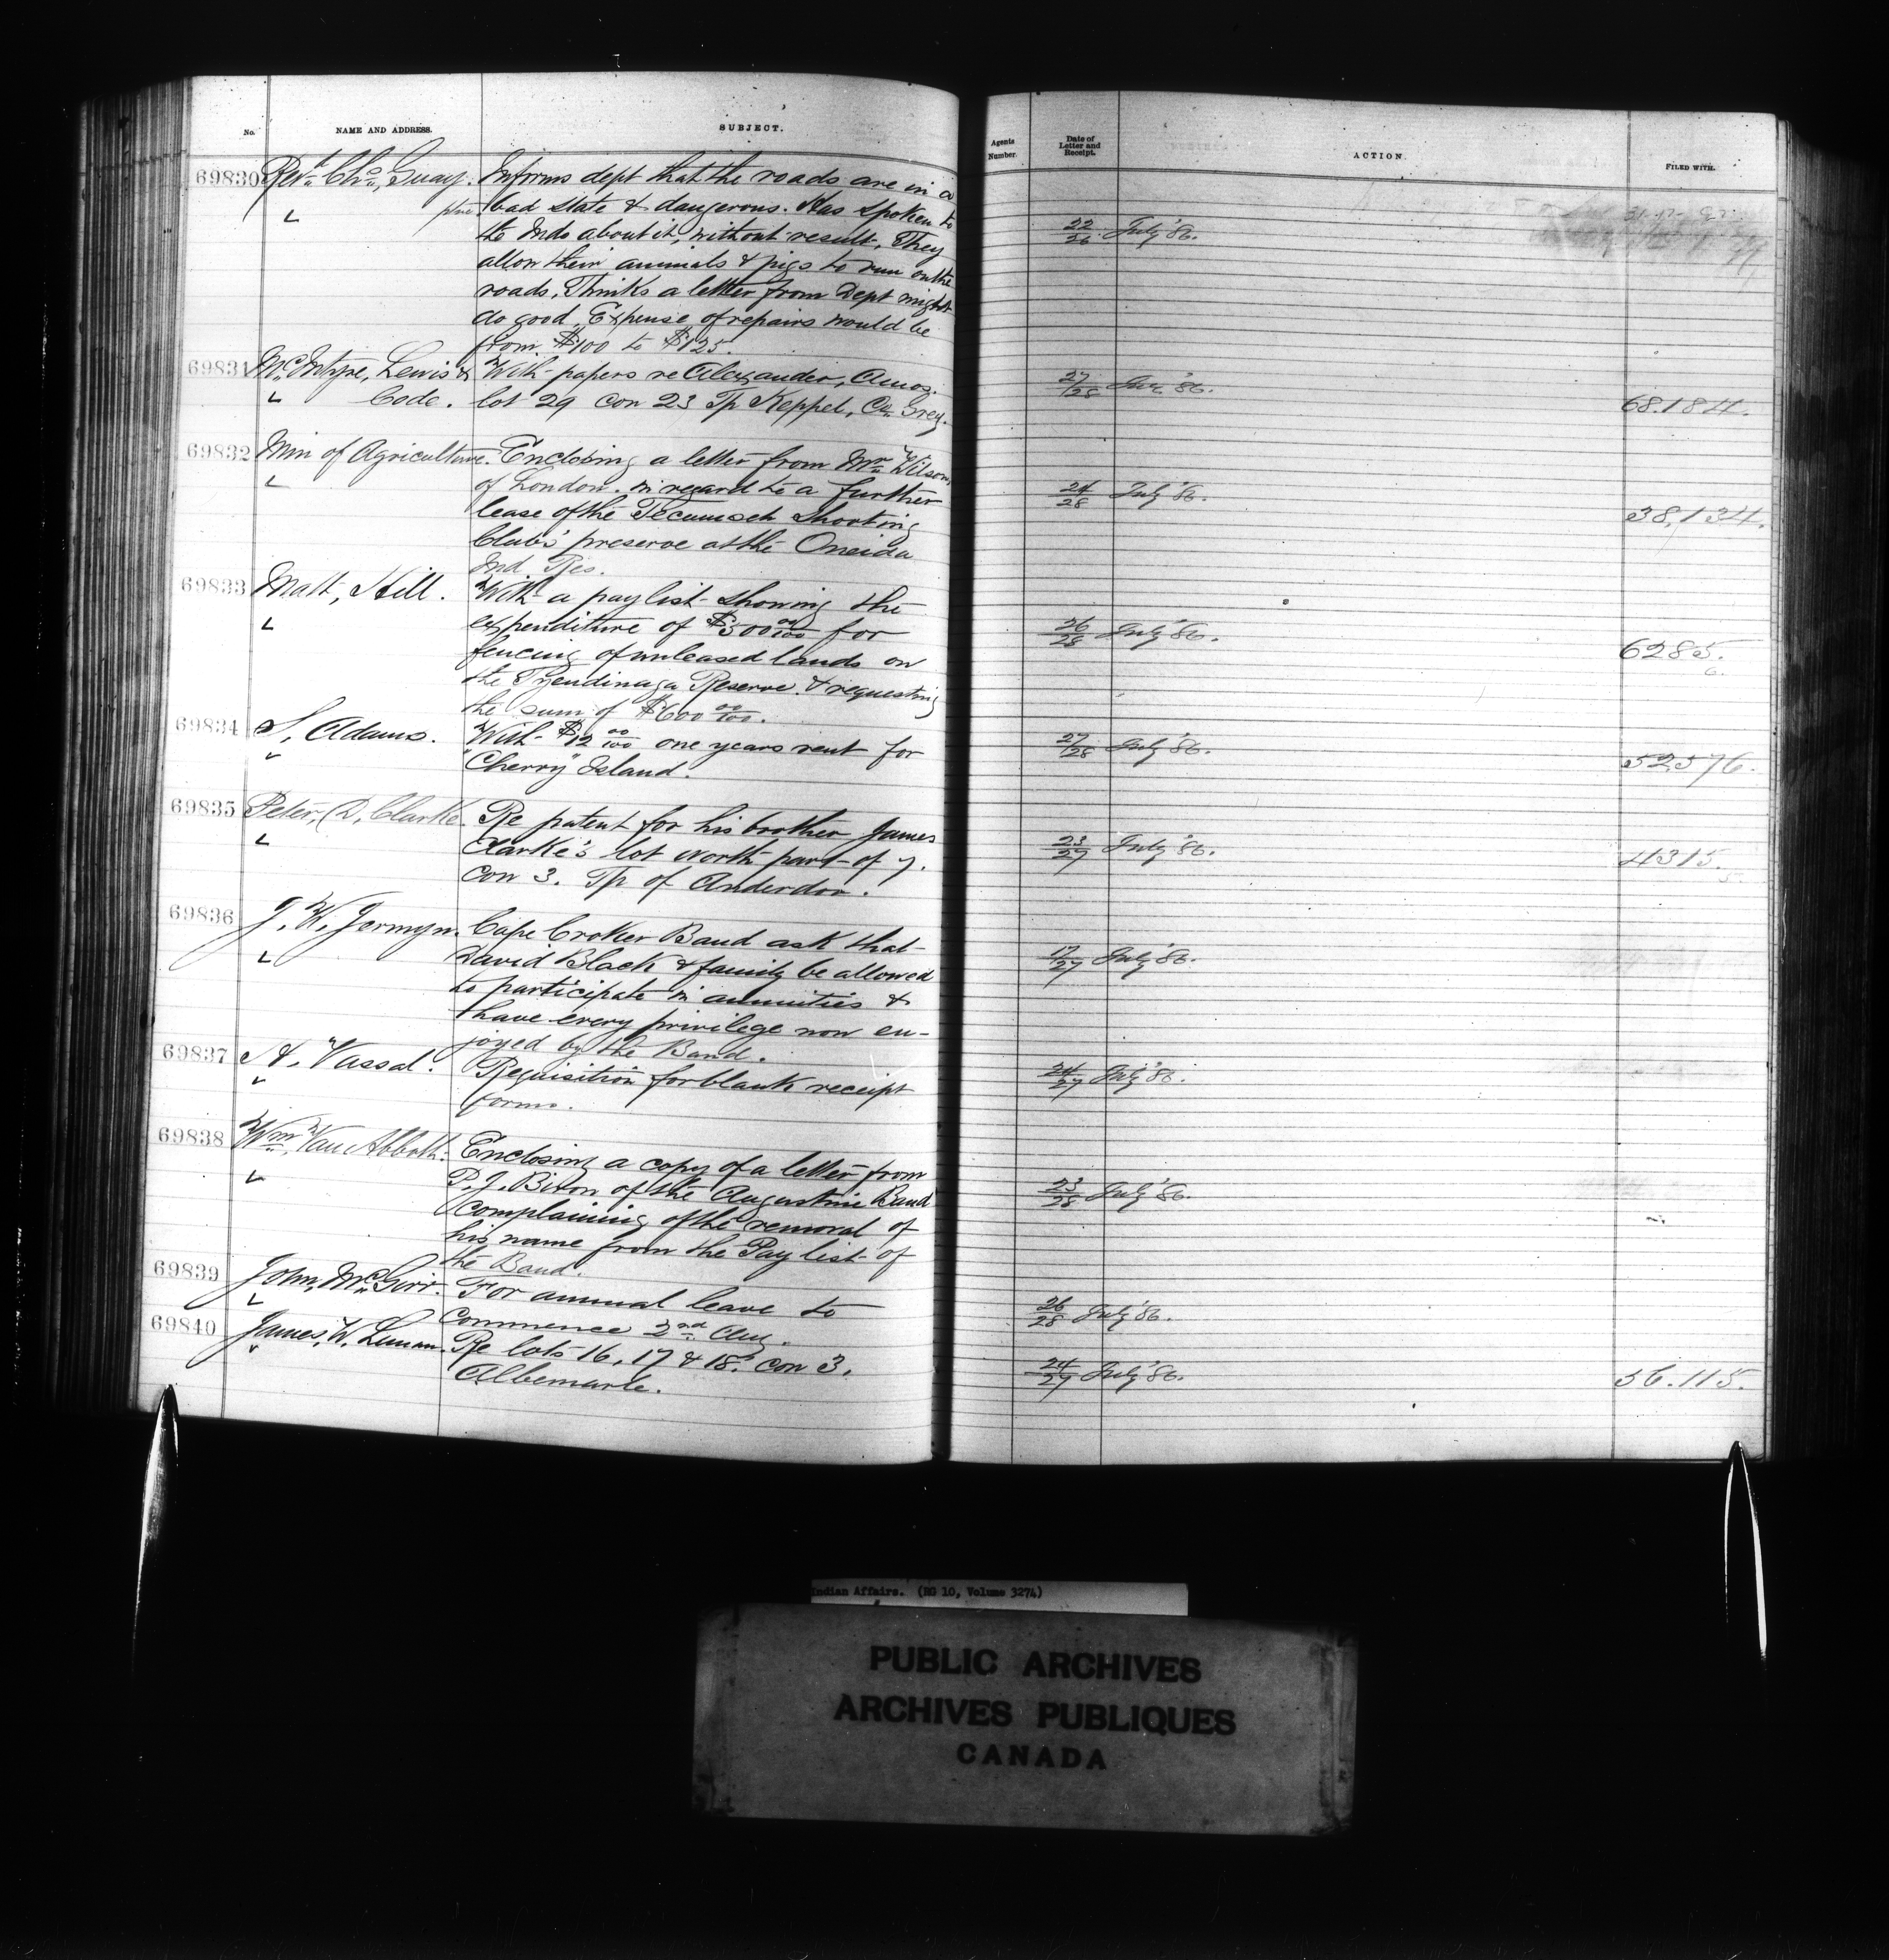 No. NAME AND ADDRESS. SUBJECT. Agents Number. Date of Letter and Receipt. ACTION. FILED WITH.
69830 Revd. Chs. Guay. Informs dept that the roads are in a
bad state & dangerous. Has spoken to
the Inds about it, without result. They 22/26 July '86.
allow their animals & pigs to run on the
roads. Thinks a letter from Dept might
do good. Expense of repairs would be
from $100 to $125.
69831 McIntyre, Lewis & With papers re Alexander, Amos. 27/28 '86.
Code. lot 29 con 23 Tp Keppel, Co. Grey. 68.184.
69832 Min of Agriculture. Enclosing a letter from Mr. Wilson,
of London. in regard to a further 24/28 July '86.
lease of the Tecumseh Shooting 38,134.
Clubs' preserve at the Oneida
Ind Res.
69833 Matt, Hill. With a paylist showing the
expenditure of $500 00/100 for 26/28 July '86.
fencing of unleased lands on 6285.
the Tyendinaga Reserve. & requesting 6.
the sum of $600 00/100.
69834 S. Adams. With $12 00/100 one years rent for 27/28 July '86.
"Cherry" Island. 52576.
69835 Peter, D. Clarke. Re patent for his brother James
Clarke's lot North part of 7. 23/27 July '86. 4315.
con 3. Tp of Anderdon. 5.
69836 J. W. Jermyn. Cape Croker Band ask that
David Black & family be allowed 17/27 July '86.
to participate in annuities &
have every privilege now en-
joyed by the Band.
69837 A. Vassal. Requisition for blank receipt 24/27 July '86.
forms.
69838 Wm. Van Abbott. Enclosing a copy of a letter from
P. J. Biron of the Augustine Band 23/28 July '86.
complaining of the removal of
his name from the Pay list of
the Band.
69839 John, McGirr. For annual leave to 26/28 July '86.
commence 2nd Aug.
69840 James, W. Re lots 16, 17 & 18. con 3. 24/27 July '86.
Albemarle. 56.115.
Indian Affairs. (RG 10, Volume 3274)
PUBLIC ARCHIVES
ARCHIVES PUBLIQUES
CANADA